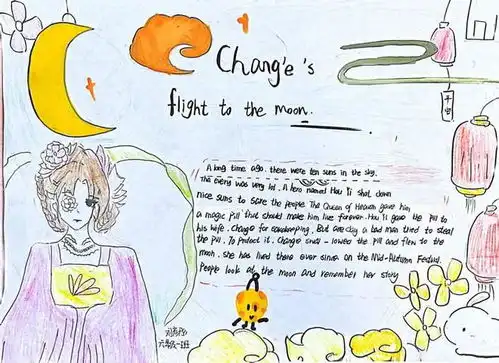 Chang'e's
flight to the moon.
A long time ago, there were ten suns in the sky.
The every was very lot. A hero named Hou Yi shot down
nice suns to save the people. The Queen of Heaven gave him
a magic pill that should make him live forever. Hou Yi gave the pill to
his wife. Chang'e for safekeeping. But one day a bad man tried to steal
the pill. To protect it. Chang'e swallowed the pill and flew to the
moon. she has lived there ever since on the Mid-Autumn Festival
People look at the moon and remember her story
六年级一班